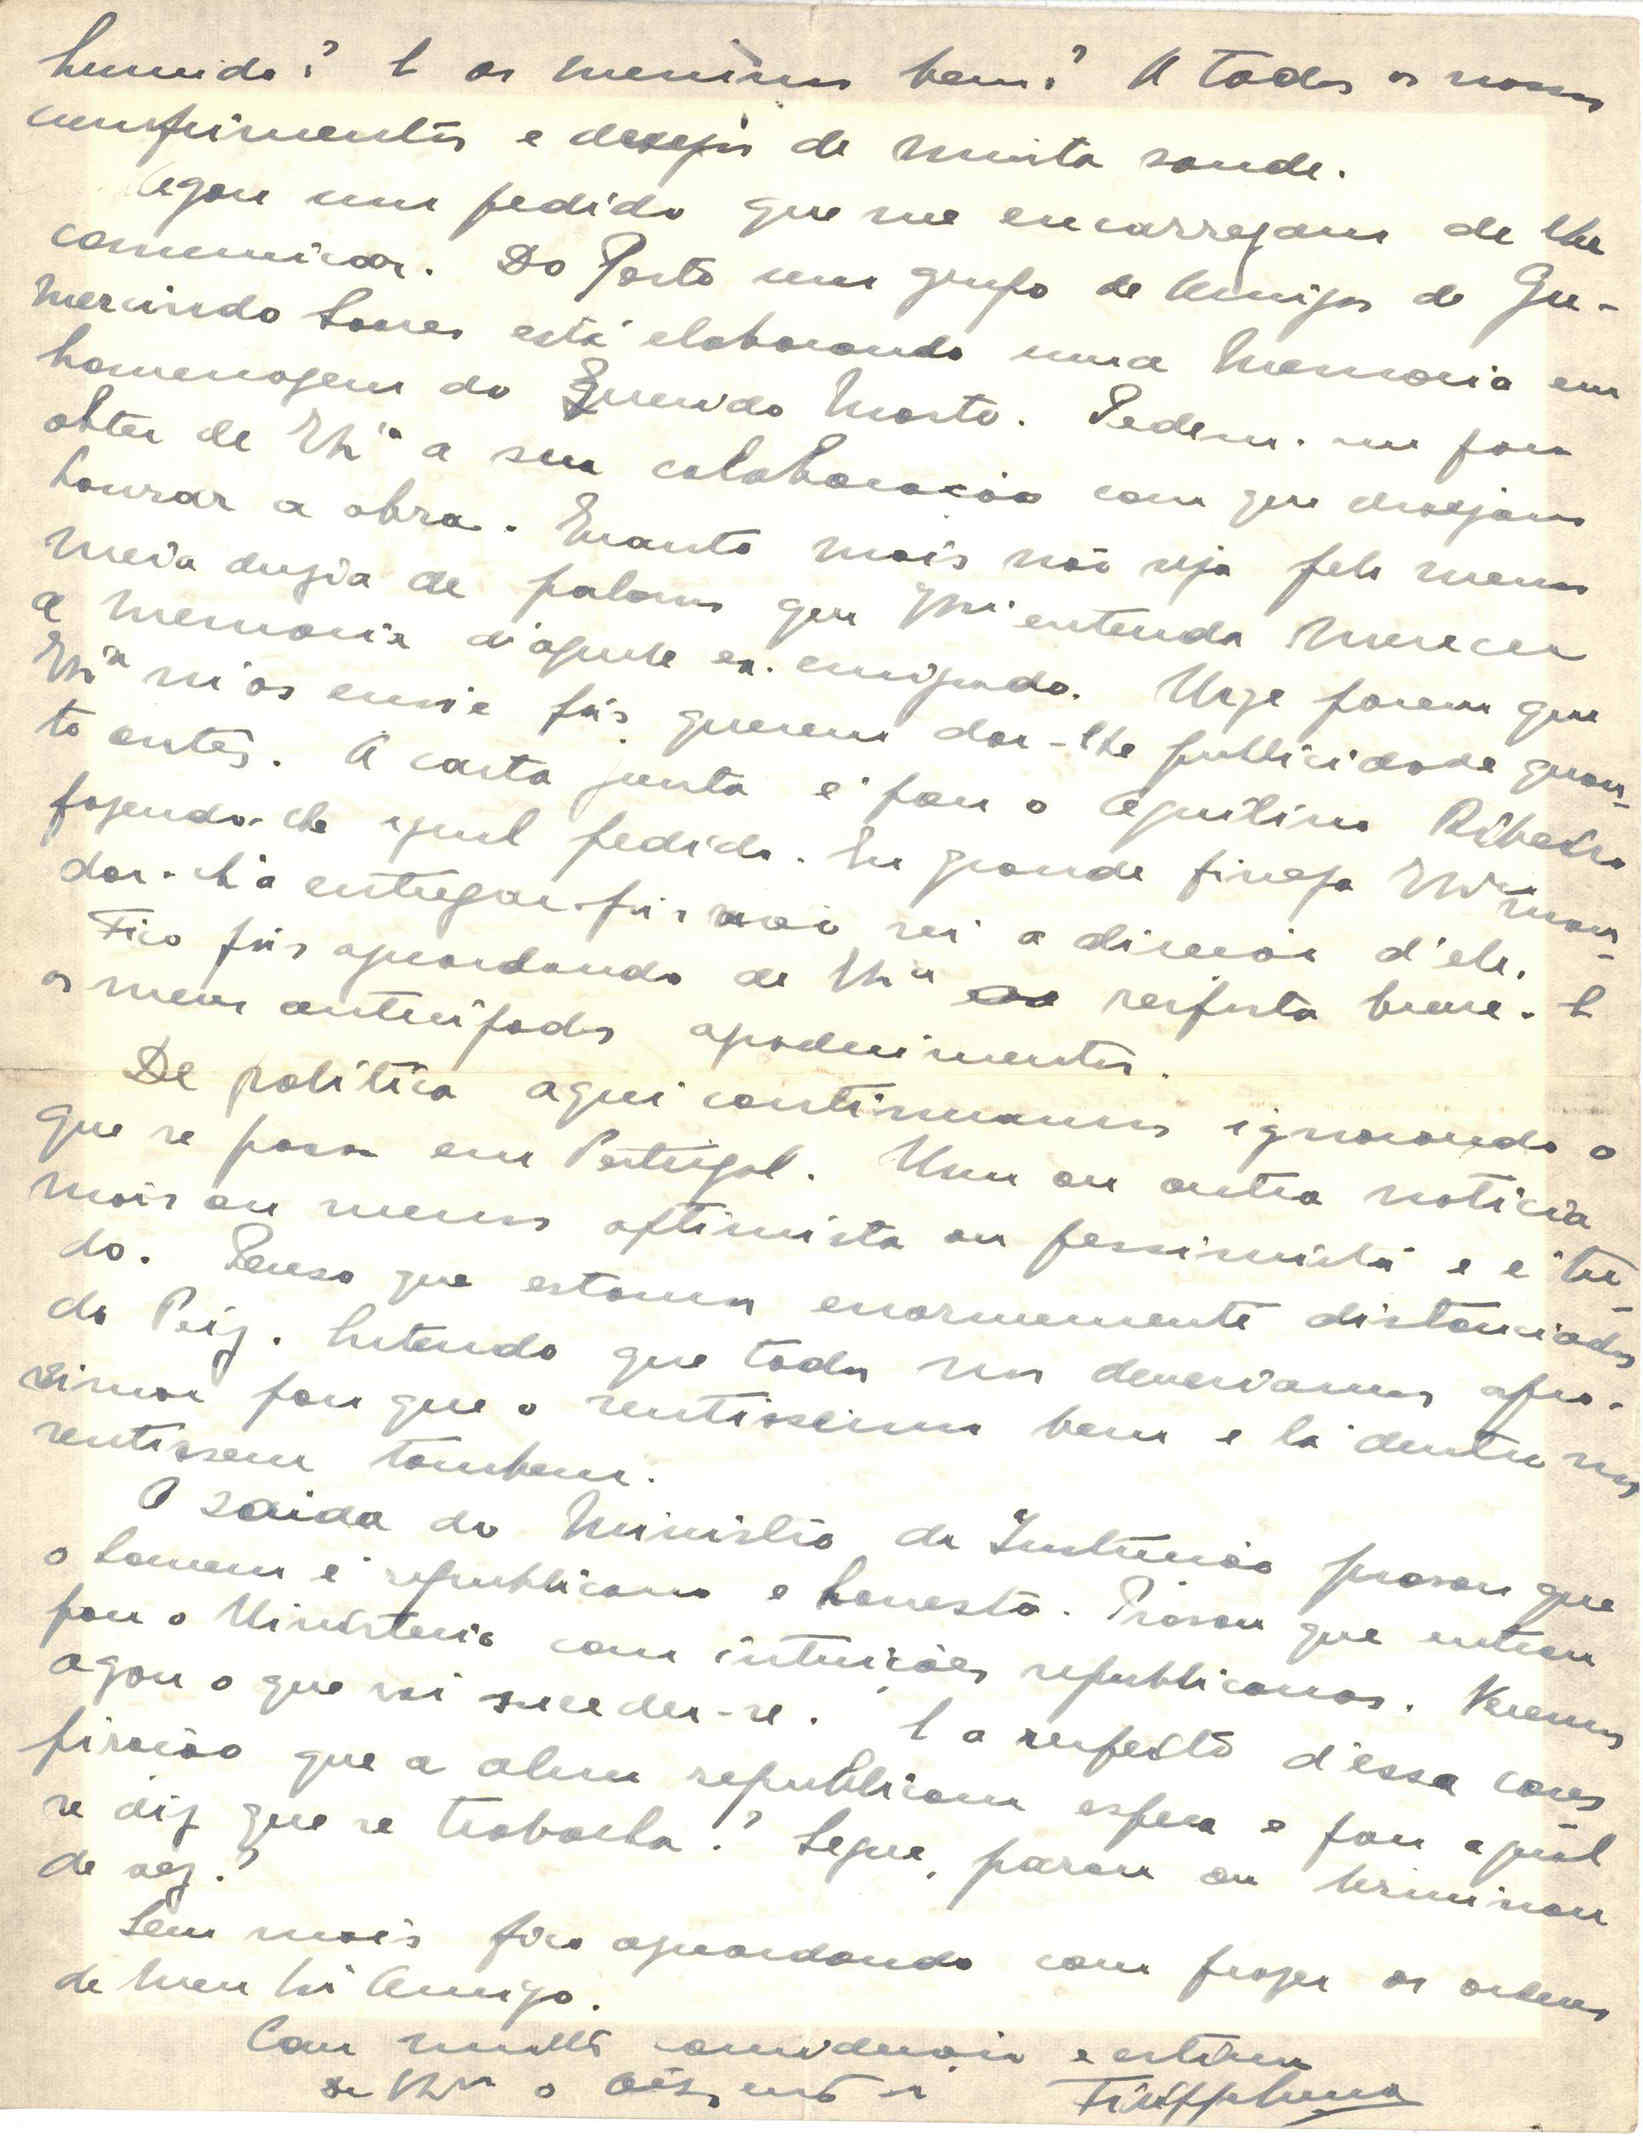 humido? E os meninos bem? A todos os nossos
cumprimentos e desejos de muita saude.
Agora um pedido que me encarregam de lhe
comunicar. Do Porto um grupo de Amigos de Gu-
mercindo Soares está elaborando uma Memoria em
homenagem do Querido Morto. Pedem-me para
obter de V. a sua colaboração com que desejam
honrar a obra. Quanto mais não seja pelo menos
meia duzia de palavras que entenda merecer
a memoria d'aquele ex-emigrado. Urge porem que
V. m'as envie pois querem dar-lhe publicidade quan-
to antes. A carta junta é para o Aquilino Ribeiro
fazendo-lhe igual pedido. Era grande fineza man-
dar-lh'a entregar pois não sei a direcção d'ele.
Fico pois aguardando de resposta breve. E
os meus antecipados agradecimentos.
De politica aqui continuamos ignorando o
que se passa em Portugal. Uma ou outra noticia
mais ou menos optimista ou pessimista e é tu-
do. Penso que estamos enormemente distanciados
do Paiz. Entendo que todos nos deveriamos apro-
ximar para que o sentissimos bem e lá dentro nos
sentissem tambem.
A saida do Ministro da Instrução provou que
o homem é republicano e honesto. Provou que entrou
para o Ministerio com intuições republicanas. Veremos
agora o que vai suceder-se. E a respeito d'essa cons
piração que a alma republicana espera e para a qual
se diz que se trabalha? Segue, parou ou terminou
de vez?
Sem mais fico aguardando com prazer as ordens
de Meu Amigo.
Com muita consideração e estima
de o